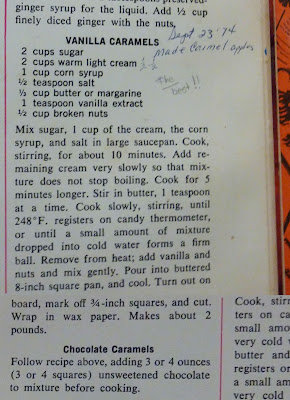 ginger syrup for the liquid. Add ½ cup
finely diced ginger with the nuts.
VANILLA CARAMELS
Sept 23 '74
Made Carmel apples
2 cups sugar
2 cups warm light cream
1 cup corn syrup
½ teaspoon salt
⅓ cup butter or margarine
1 teaspoon vanilla extract
½ cup broken nuts
the best!!
Mix sugar, 1 cup of the cream, the corn
syrup, and salt in large saucepan. Cook,
stirring, for about 10 minutes. Add re-
maining cream very slowly so that mix-
ture does not stop boiling. Cook for 5
minutes longer. Stir in butter, 1 teaspoon
at a time. Cook slowly, stirring, until
248°F. registers on candy thermometer,
or until a small amount of mixture
dropped into cold water forms a firm
ball. Remove from heat; add vanilla and
nuts and mix gently. Pour into buttered
8-inch square pan, and cool. Turn out on
board, mark off ¾-inch squares, and cut.
Wrap in wax paper. Makes about 2
pounds.
Chocolate Caramels
Follow recipe above, adding 3 or 4 ounces
(3 or 4 squares) unsweetened chocolate
to mixture before cooking.
Cook, stirr
ters on ca
small amo
very cold w
butter and
registers or
a small am
very cold